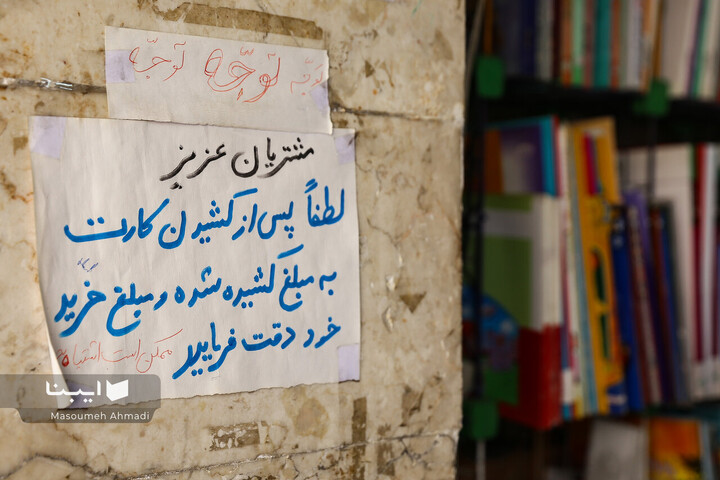 توجّه توجّه توجّه
مشتریان عزیز
لطفاً پس از کشیدن کارت
به مبلغ کشیده شده و مبلغ خرید
خود دقت فرمایید
ممکن است اشتباه
ایبنا
Masoumeh Ahmadi